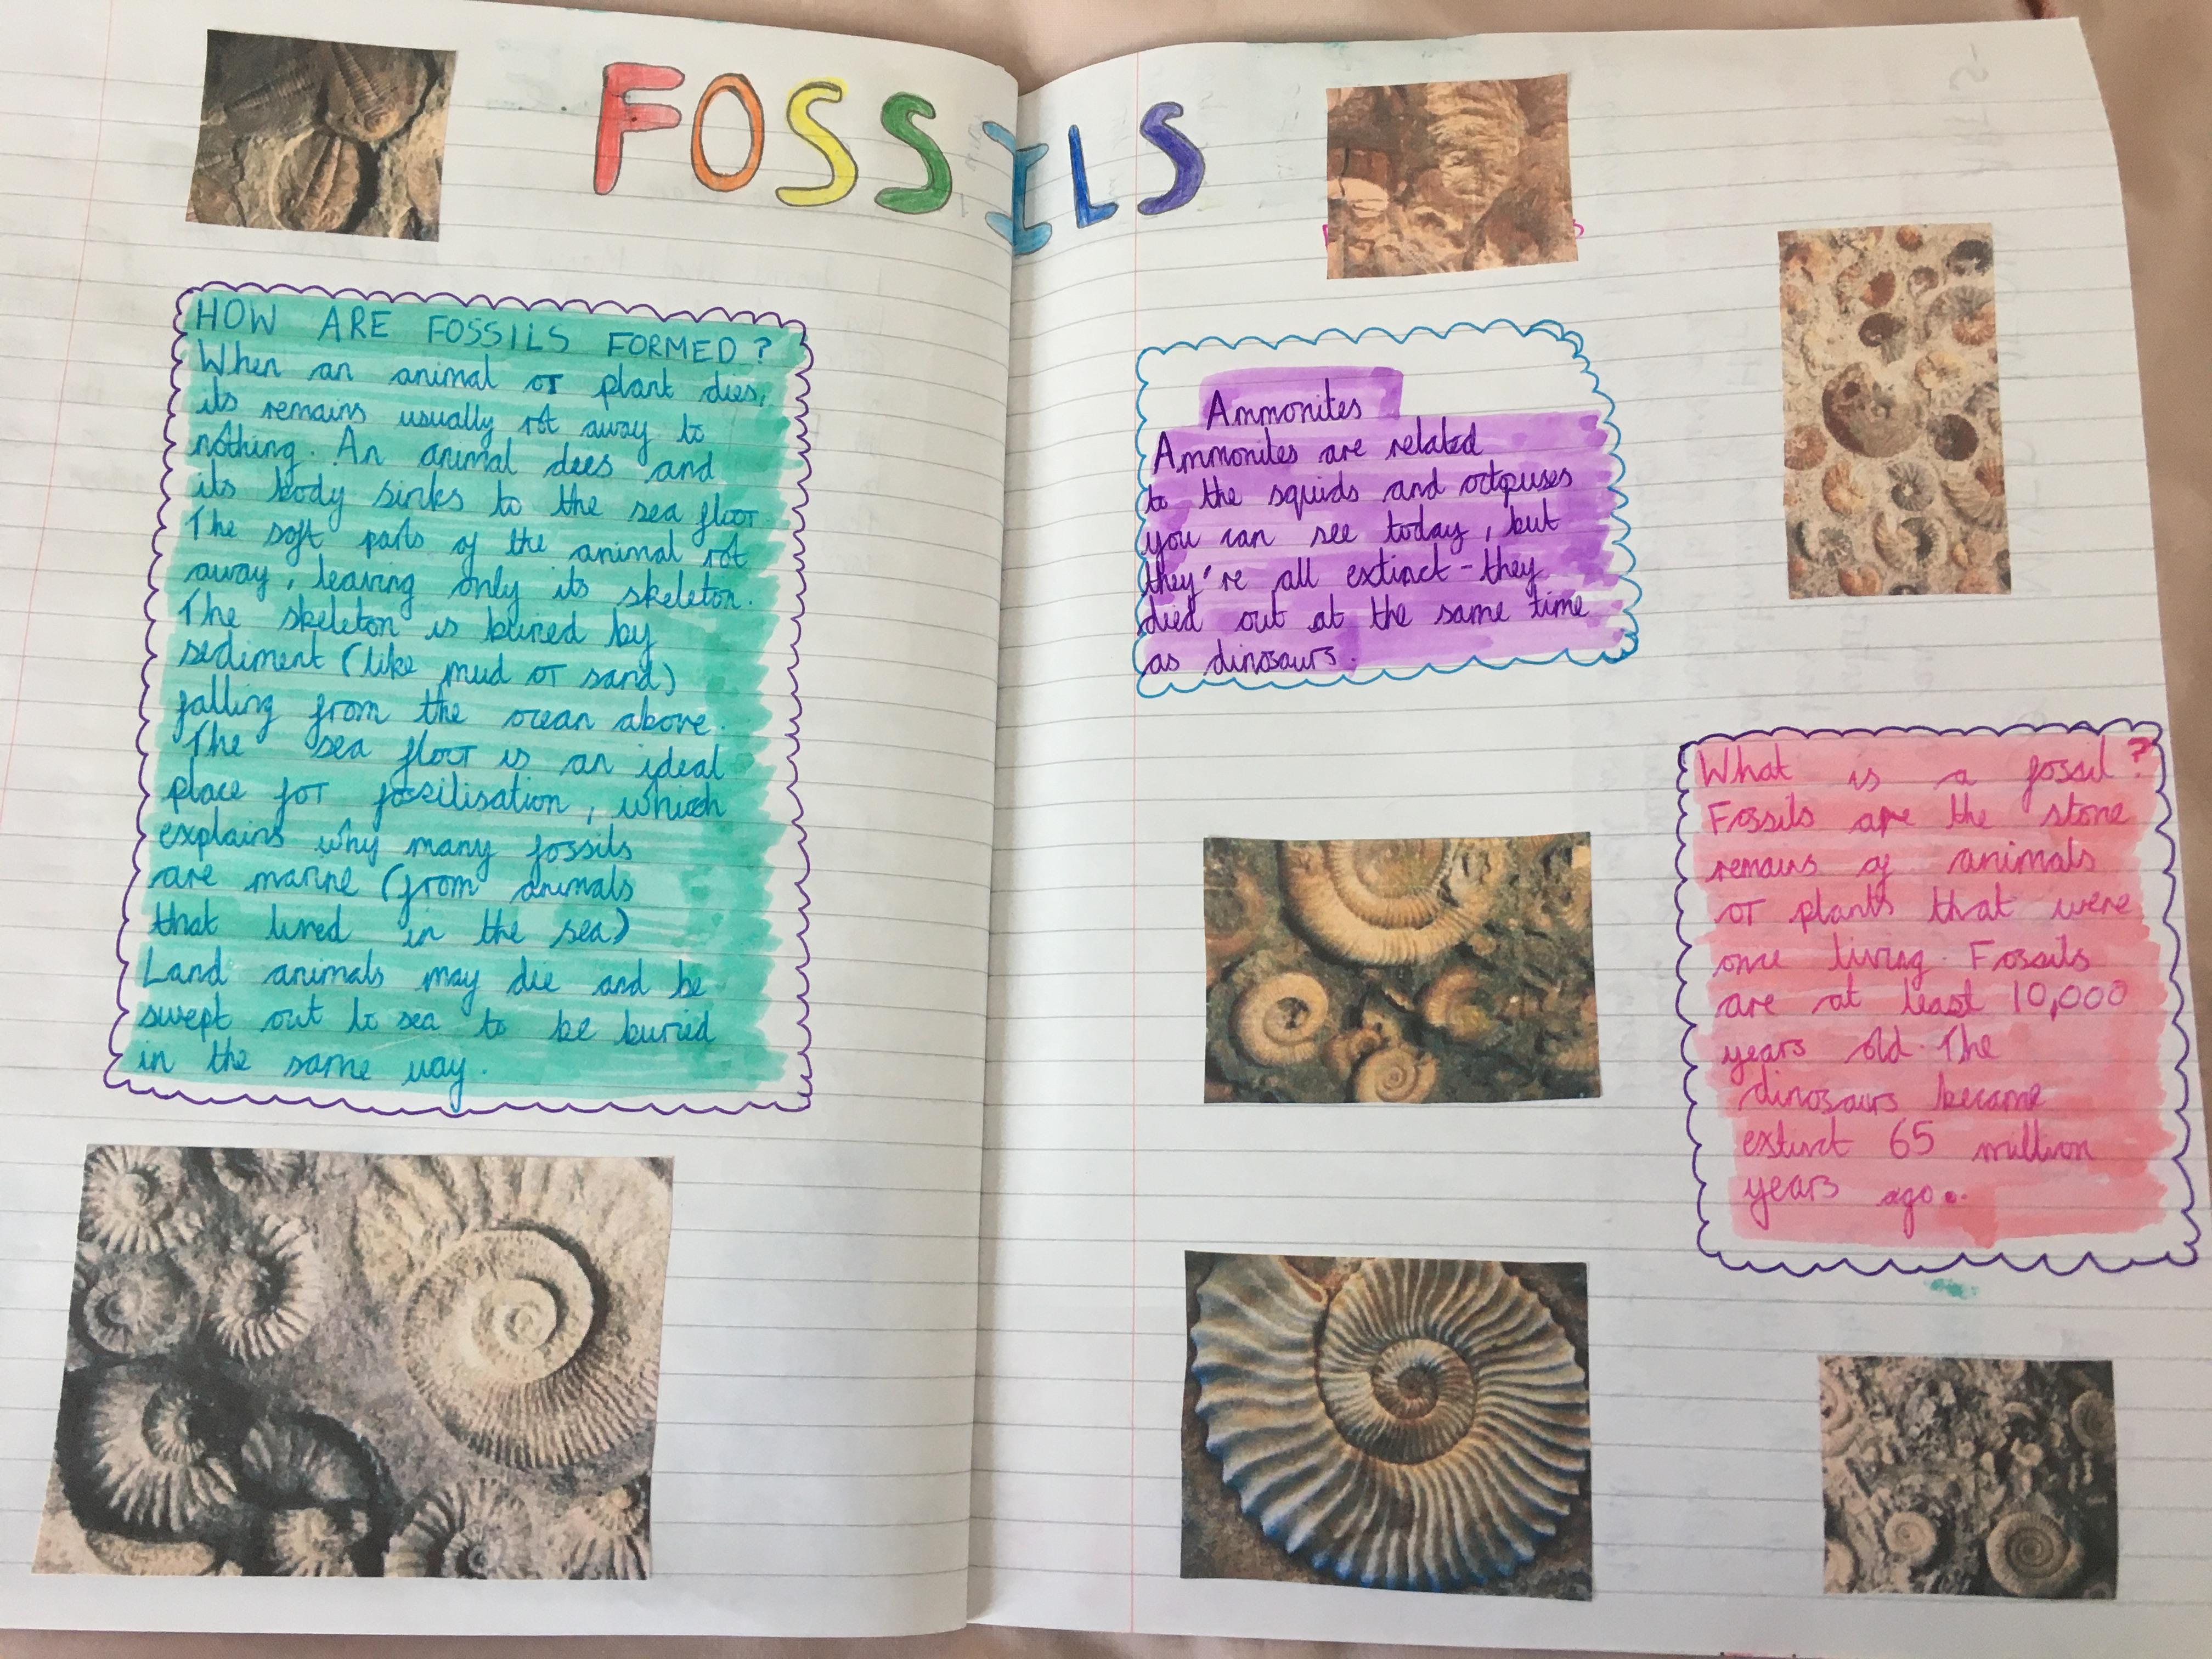 FOSSILS
HOW ARE FOSSILS FORMED?
When an animal or plant dies,
its remains usually rot away to
nothing. An animal dies and
its body sinks to the sea floor.
The soft parts of the animal rot
away, leaving only its skeleton.
The skeleton is buried by
sediment (like mud or sand)
falling from the ocean above.
The sea floor is an ideal
place for fossilisation, which
explains why many fossils
are marine (from animals
that lived in the sea)
Land animals may die and be
swept out to sea to be buried
in the same way.
Ammonites
Ammonites are related
to the squids and octopuses
you can see today, but
they're all extinct - they
died out at the same time
as dinosaurs.
What is a fossil?
Fossils are the stone
remains of animals
or plants that were
once living. Fossils
are at least 10,000
years old. The
dinosaurs became
extinct 65 million
years ago.